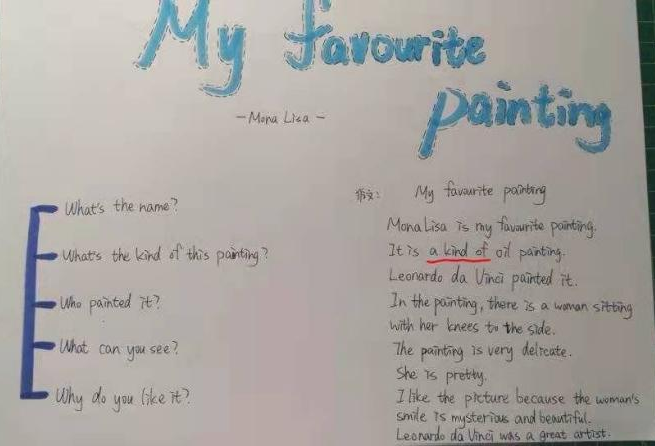 My favourite
painting
- Mona Lisa -
What's the name?
What's the kind of this painting?
Who painted it?
What can you see?
Why do you like it?
作文: My favourite painting
Mona Lisa is my favourite painting.
It is a kind of oil painting.
Leonardo da Vinci painted it.
In the painting, there is a woman sitting
with her knees to the side.
The painting is very delicate.
She is pretty.
I like the picture because the woman's
smile is mysterious and beautiful.
Leonardo da Vinci was a great artist.